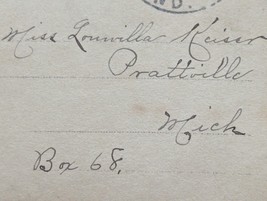 ND.
Miss Louwilla Keiser
Prattville
Mich.
Box 68.